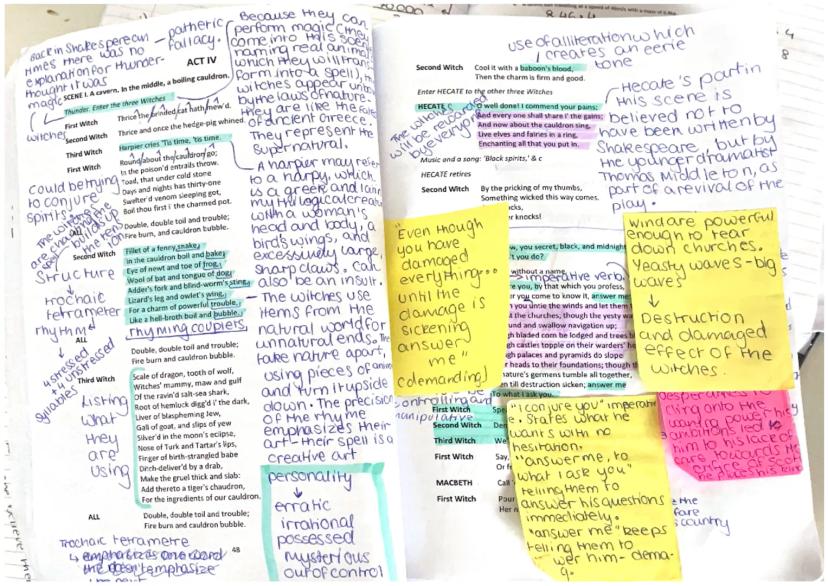 Back in Shakespearean
times there was no
explanation for thunder-
thought it was
magic
pathetic
fallacy.
ACT IV
SCENE I. A cavern. In the middle, a boiling cauldron.
Thunder. Enter the three Witches
First Witch
Thrice the brinded cat hath mew'd.
Second Witch
Thrice and once the hedge-pig whined.
Third Witch
Harpier cries 'Tis time, 'tis time.
First Witch
Round about the cauldron go;
In the poison'd entrails throw.
Toad, that under cold stone
Days and nights has thirty-one
Swelter'd venom sleeping got,
Boil thou first i' the charmed pot.
ALL
Double, double toil and trouble;
Fire burn, and cauldron bubble.
Second Witch
Fillet of a fenny snake,
In the cauldron boil and bake;
Eye of newt and toe of frog,
Wool of bat and tongue of dog,
Adder's fork and blind-worm's sting,
Lizard's leg and owlet's wing,
For a charm of powerful trouble,
Like a hell-broth boil and bubble.
rhyming couplets
ALL
Double, double toil and trouble;
Fire burn and cauldron bubble.
Third Witch
Scale of dragon, tooth of wolf,
Witches' mummy, maw and gulf
Of the ravin'd salt-sea shark,
Root of hemlock digg'd i' the dark,
Liver of blaspheming Jew,
Gall of goat, and slips of yew
Silver'd in the moon's eclipse,
Nose of Turk and Tartar's lips,
Finger of birth-strangled babe
Ditch-deliver'd by a drab,
Make the gruel thick and slab:
Add thereto a tiger's chaudron,
For the ingredients of our cauldron.
ALL
Double, double toil and trouble;
Fire burn and cauldron bubble.
48
witches
could be trying
to conjure
spirits.
Structure
trochaic
tetrameter
rhythm
4 stressed
+ 4 unstressed
syllables
Listing
what
they
are
using
Trochaic tetrametre
emphasizes one word
Because they can
perform magic (they
come into this scene
naming real animals
which they will trans
form into a spell), the
witches appear un
by the laws of nature-
they are like the fates
of ancient Greece.
They represent the
supernatural.
A harpier may refer
to a harpy, which
is a greek and
mythological creature
with a woman's
head and body, a
bird's wings, and
excessively large,
sharp claws. Can
also be an insult.
The witches use
items from the
natural world for
unnatural ends. The
take nature apart,
using pieces of
and turn it upside
down. The precision
of the rhyme
emphasizes their
art - their spell is a
creative art
personality
erratic
irrational
possessed
mysterious
out of control
use of alliteration which
creates an eerie
tone
Second Witch
Cool it with a baboon's blood,
Then the charm is firm and good.
Enter HECATE to the other three Witches
HECATE
O well done! I commend your pains;
And every one shall share i' the gains;
And now about the cauldron sing,
Live elves and fairies in a ring,
Enchanting all that you put in.
Music and a song: 'Black spirits,' & c
HECATE retires
Second Witch
By the pricking of my thumbs,
Something wicked this way comes.
knocks!
The witches
will be rewarded
by everyone
Hecate's part in
this scene is
believed not to
have been written by
Shakespeare, but by
the younger dramatist
Thomas Middleton, as
part of a revival of the
play.
"Even though
you have
damaged
everything...
until the
damage is
sickening
answer
me"
(demanding)
w, you secret, black, and midnight
t you do?
without a name.
imperative verb
e you, by that which you profess,
er you come to know it, answer me
you untie the winds and let them
t the churches; though the yesty wa
und and swallow navigation up;
h bladed corn be lodged and trees b
h castles topple on their warders' he
gh palaces and pyramids do slope
r heads to their foundations; though th
ature's germens tumble all together,
n till destruction sicken; answer me
To what I ask you.
wind are powerful
enough to tear
down churches.
Yeasty waves - big
waves
Destruction
and damaged
effect of the
witches.
controlling and
manipulative
First Witch
Second Witch
Third Witch
First Witch
Say,
MACBETH
Call
First Witch
Pour
"I conjure you" imperative
. States what he
wants with no
hesitation.
"answer me, to
what I ask you"
telling them to
answer his questions
immediately.
"answer me" keeps
telling them to
wer him - dema
country